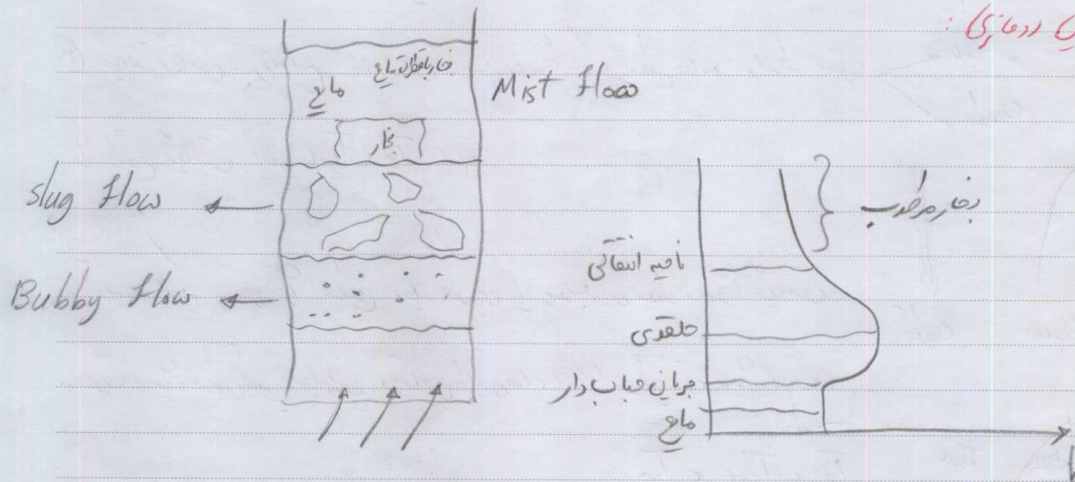 دوفازی :
بخار با قطرات مایع
مایع
Mist flow
بخار
slug flow
Bubby flow
بخار مرطوب
ناحیه انتقالی
حلقوی
جریان حباب دار
مایع
h